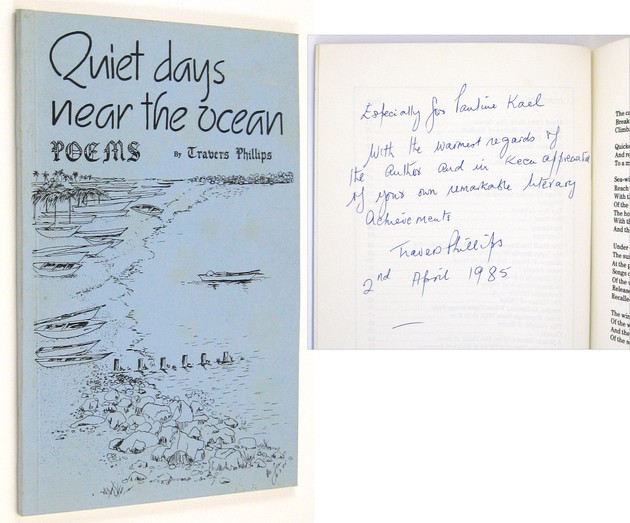 Quiet days
near the ocean
POEMS By Travers Phillips
Especially for Pauline Kael
With the warmest regards of
the author and in keen appreciation
of your own remarkable literary
achievements
Travers Phillips
2nd April 1985
The
Break
Climb
Quicke
And re
To a m
Sea-wi
Reach
With th
Of the
The ho
With th
And th
Under
The su
At the p
Songs o
Of the v
Release
Recalle
The win
Of the w
And the
And the
Of the s